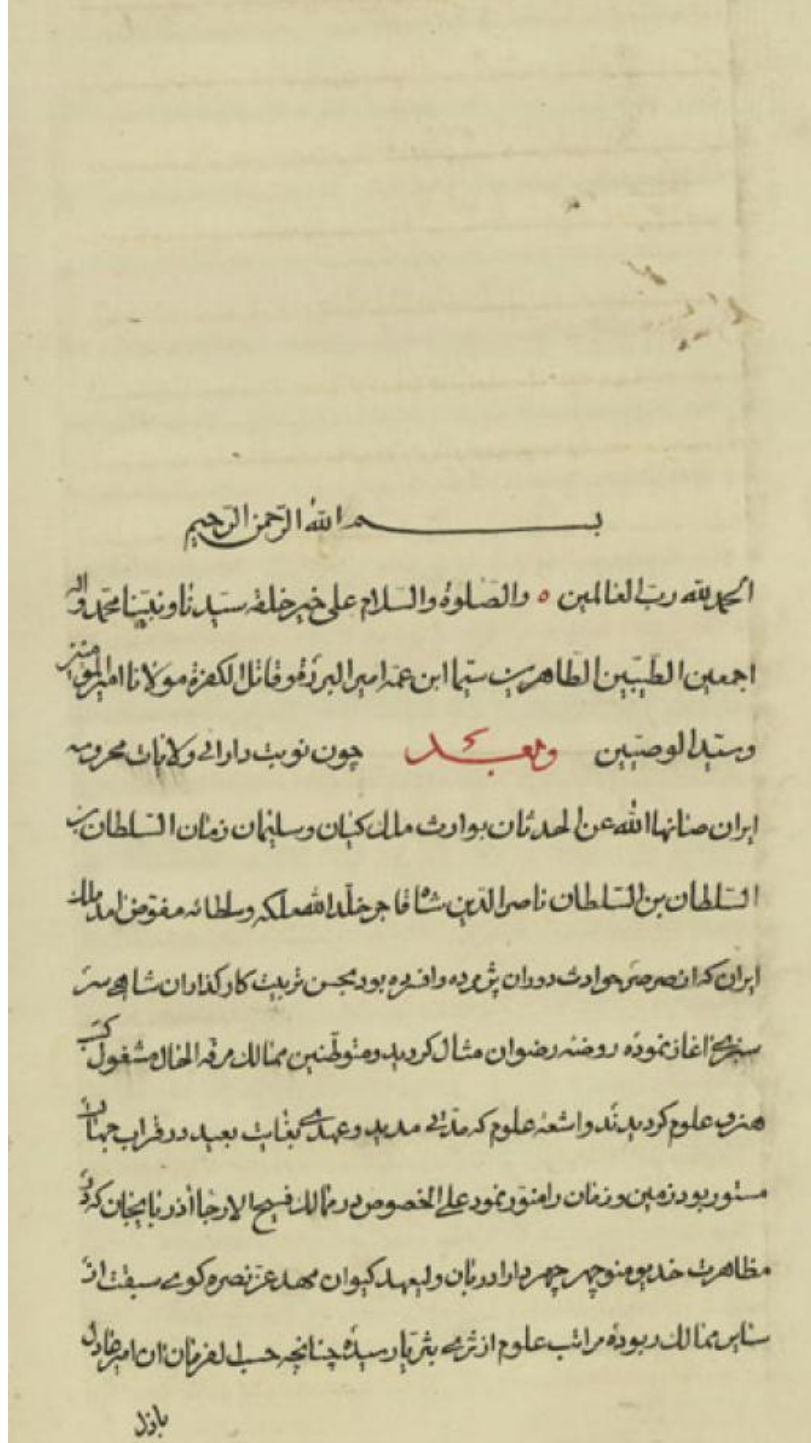 بسم الله الرّحمن الرّحیم
الحمد لله ربّ العالمین ه والصّلوة والسّلام علی خیر خلقه سیّدنا و نبیّنا محمّد واله
اجمعین الطّیبین الطّاهرین سیّما ابن عمّه امیر البررة و قاتل الکفرة مولانا امیر المؤمنین
وسیّد الوصیّین وبعد چون نوبت دارائی ولایات محروسه
ایران صانها الله عن الحدثان بوارث ملک کیان و سلیمان زمان السّلطان بن
السّلطان بن السّلطان ناصر الدّین شاه قاجار خلّد الله ملکه و سلطانه مفوّض امد ملک
ایران که از صرصر حوادث دوران پژمرده و افسرده بود بحسن تربیت کارگذاران شاهی سر
سبزی اغاز نموده روضه رضوان مثال کردید و متوطّنین ممالک مرفّه الحال مشغول کسب
هنر و علوم کردیدند و اشعه علوم که مدّتی مدید و عهدی بغایت بعید در قراب جهان
مستور بود زمین و زمان را منوّر نمود علی الخصوص در ممالک فسیح الارجا أذربایجان که
مظاهرت خدیو منوچهر چهر دارا دربان ولیعهد کیوان مهد عزّ نصره کوی سبقت از
سایر ممالک ربوده مراتب علوم از ثری بثریّا رسیده چنانچه حسب الفرمان ان امیر عادل
باذل